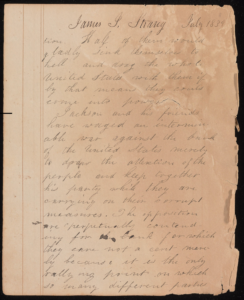 James J. Strang July 1834
ion. Half of them would
gladly send
hell and drag the whole
United States with them if
by that means they could
come into power.
Jackson and his friends
have waged an intermin
able war against the bank
of the United States merely
to the attention of the
people and keep together
his party while they are
carrying on their corrupt
measures. The opposition
are perpetually contend
ing for a bank for which
they care not a cent mere
ly because it is the only
rallying point on which
so many different parties